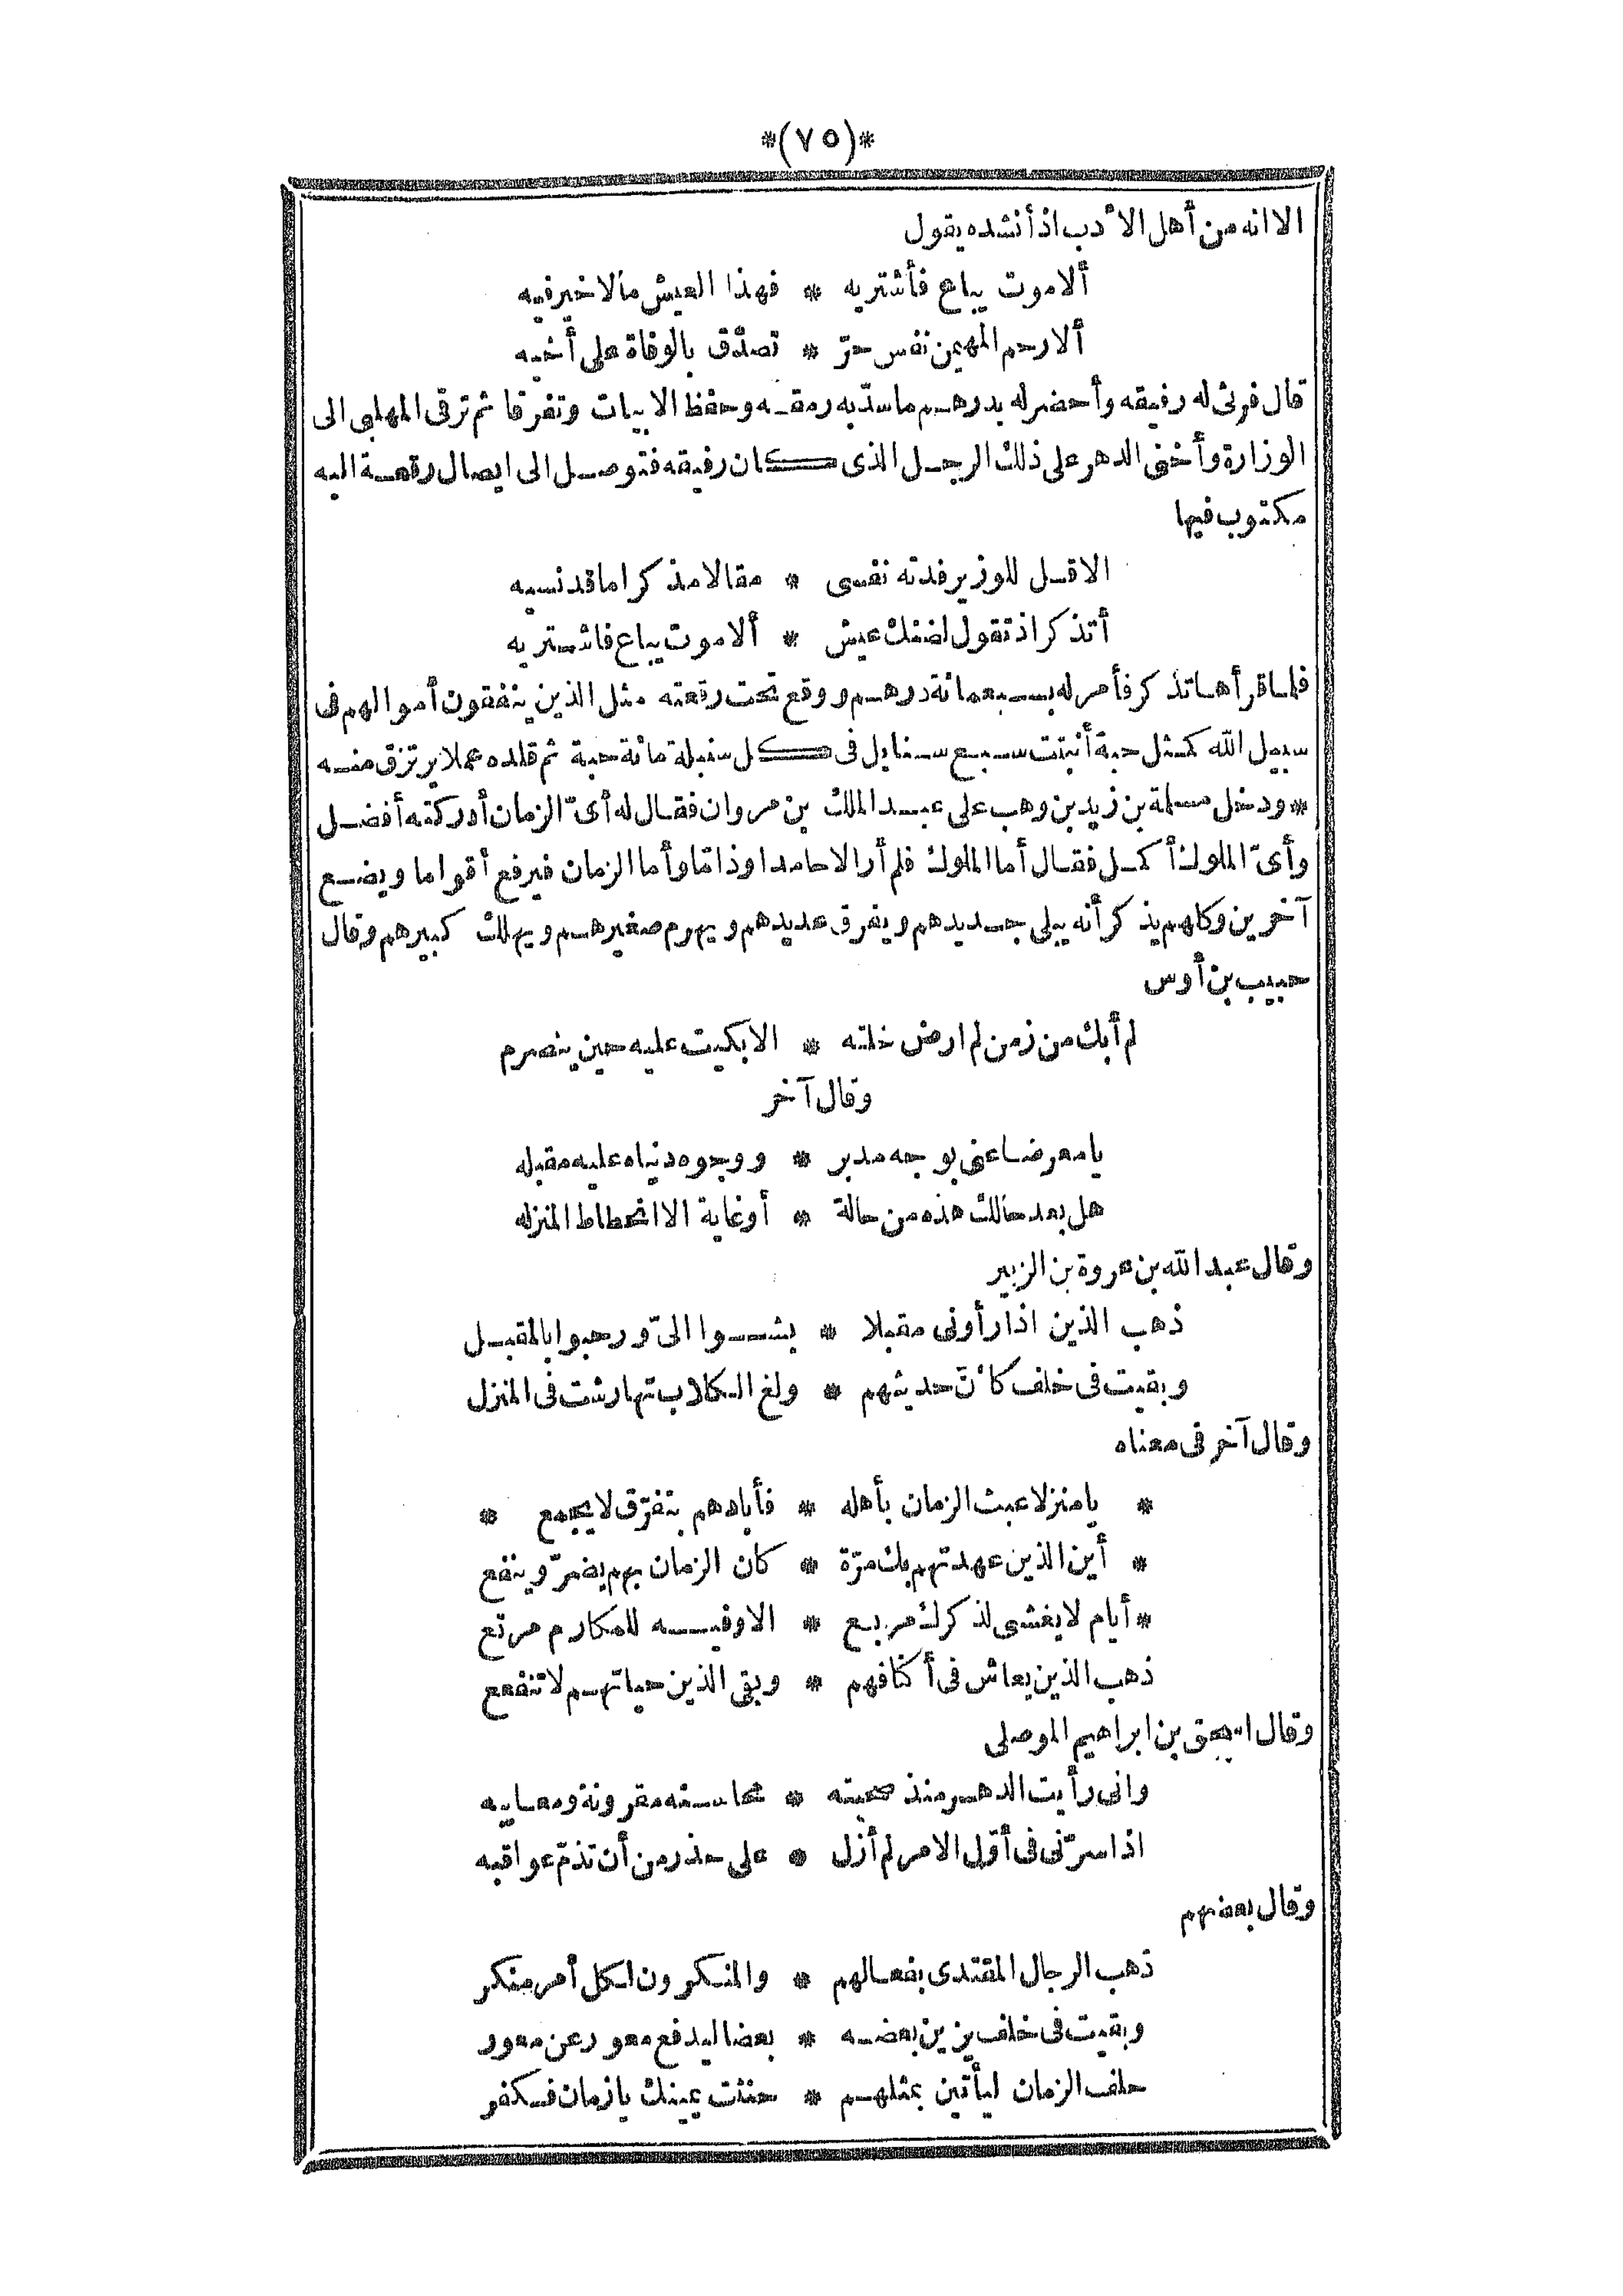 *(٧٥)*
الا انه من أهل الأدب اذ أنشده يقول
ألا موت يباع فأشتريه * فهذا العيش مالا خير فيه
ألا رحم المهيمن نفس حرّ * تصدّق بالوفاة على أخيه
قال فرثى له رفيقه وأحضر له بدرهم ما سدّ به رمقه وحفظ الابيات وتفرقا ثم ترقى المهلبى الى
الوزارة وأخنى الدهر على ذلك الرجل الذى كان رفيقه فتوصل الى ايصال رقعة اليه
مكتوب فيها
الا قل للوزير فدته نفسى * مقالا مذكرا ما قد نسيه
أتذكر اذ تقول لضنك عيش * ألا موت يباع فاشتريه
فلما قرأها تذكر فأمر له بسبعمائة درهم ووقع تحت رقعته مثل الذين ينفقون أموالهم فى
سبيل الله كمثل حبة أنبتت سبع سنابل فى كل سنبلة مائة حبة ثم قلده عملا يرتزق منه
* ودخل مسلمة بن زيد بن وهب على عبد الملك بن مروان فقال له أىّ الزمان أدركته أفضل
وأىّ الملوك أكمل فقال أما الملوك فلم أر الا حامدا وذامّا وأما الزمان فيرفع أقواما ويضع
آخرين وكلهم يذكر أنه يبلى جديدهم ويفرق عديدهم ويهرم صغيرهم ويهلك كبيرهم وقال
حبيب بن أوس
لم أبك من زمن لم ارض خلته * الا بكيت عليه حين ينصرم
وقال آخر
يا معرضا عنى بوجه مدبر * ووجوه دنياه عليه مقبله
هل بعد حالك هذه من حالة * أو غاية الا انحطاط المنزله
وقال عبد الله بن عروة بن الزبير
ذهب الذين اذا رأونى مقبلا * بشوا الىّ ورحبوا بالمقبل
وبقيت فى خلف كأنّ حديثهم * ولغ الكلاب تهارشت فى المنزل
وقال آخر فى معناه
* يا منزلا عبث الزمان بأهله * فأبادهم بتفرّق لا يجمع *
* أين الذين عهدتهم بك مرّة * كان الزمان بهم يضرّ وينفع
* أيام لا يغشى لذكرك مربع * الا وفيه للمكارم مرتع
ذهب الذين يعاش فى أكنافهم * وبقى الذين حياتهم لا تنفع
وقال اسحق بن ابراهيم الموصلى
وانى رأيت الدهر منذ صحبته * محاسنه مقرونة ومعايبه
اذا سرّنى فى أوّل الامر لم أزل * على حذر من أن تذمّ عواقبه
وقال بعضهم
ذهب الرجال المقتدى بفعالهم * والمنكرون لكل أمر منكر
وبقيت فى خلف يزين بعضه * بعضا ليدفع معور عن معور
حلف الزمان ليأتين بمثلهم * حنثت يمينك يا زمان فكفر